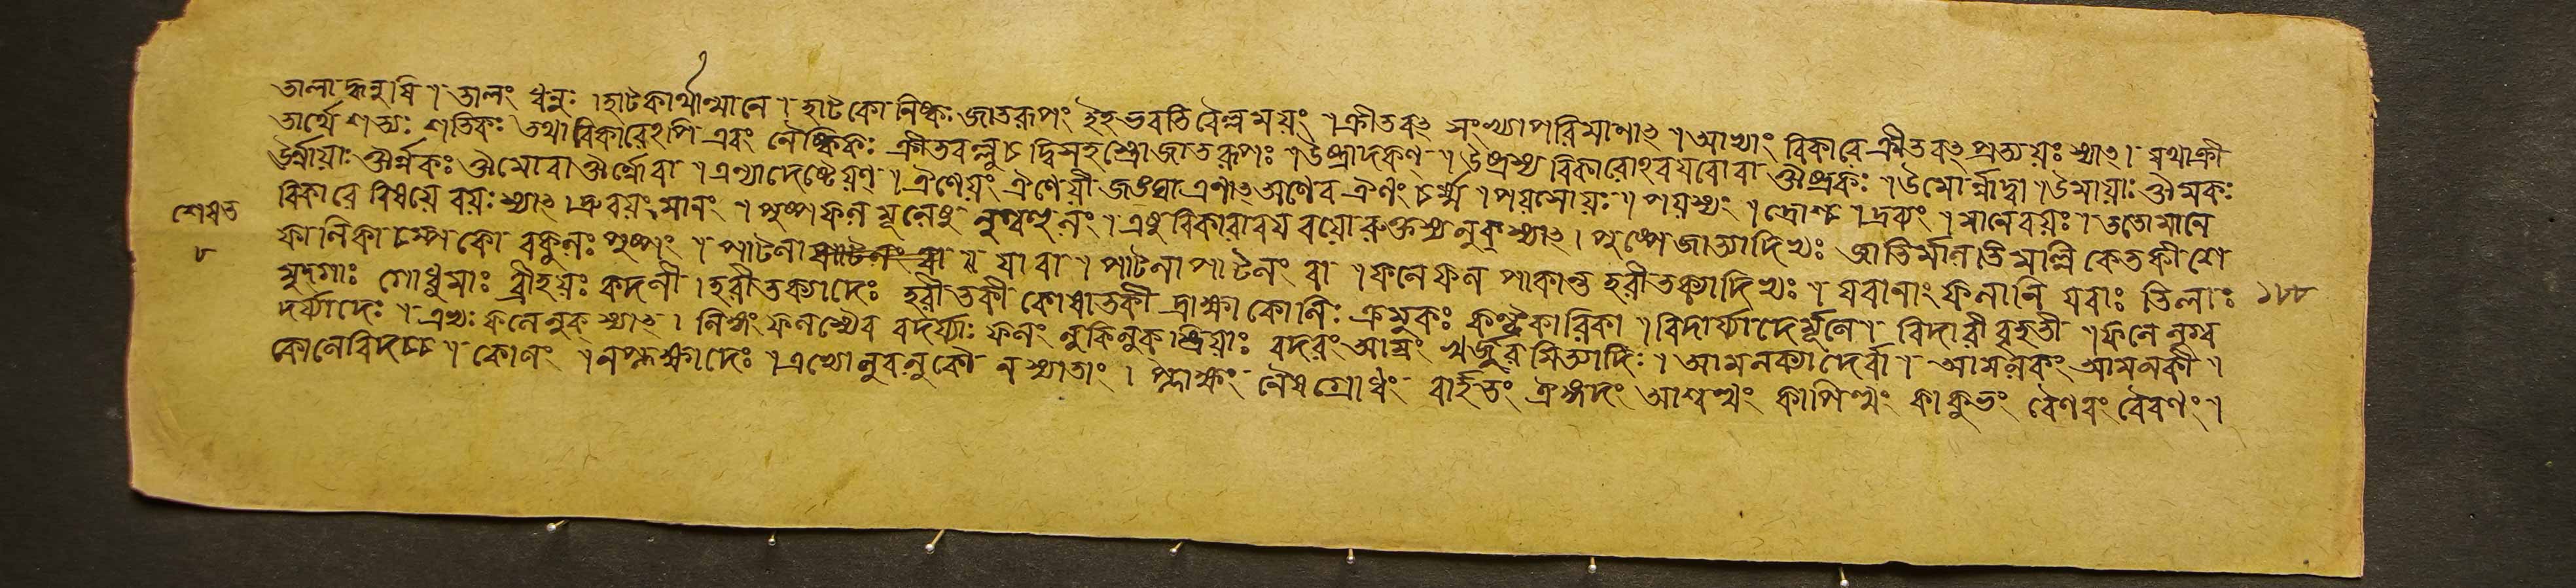 তালাদ্ধনুষি । তালং ধনুঃ । হাটকার্থান্মানে । হাটকো নিষ্কঃ জাতরূপং ইহ ভবতি বৈল্বময়ং । ক্রীতবৎ সংখ্যাপরিমাণাৎ । আভ্যাং বিকারে ক্রীতবৎ প্রত্যয়ঃ স্যাৎ । যথা ক্রী
তার্থে শত্যঃ শতিকঃ তথা বিকারেঽপি এবং নৈষ্কিকঃ ক্রীতবল্লুচ দ্বিসহস্রো জাতরূপঃ । উষ্ট্রাদকণ্ । উষ্ট্রস্য বিকারোঽবয়বো বা ঔষ্ট্রকঃ । উমোর্ন্নাদ্বা । উমায়াঃ ঔমকঃ
ঊর্ন্নায়াঃ ঔর্ন্নকঃ ঔমো বা ঔর্ন্নো বা । এণ্যাদেষ্টেয়ণ্ । ঐণেয়ং ঐণেয়ী জঙ্ঘা এণাৎ অণেব ঐণং চর্ম্ম । পয়সোয়ঃ । পয়স্যং । দ্রোশ্চ । দ্রব্যং । মানে বয়ঃ । ততো মানে
বিকারে বিষয়ে বয়ঃ স্যাৎ । দ্রুবয়ং মানং । পুষ্পফলমূলেষু লুগ্বহুলং । এষু বিকারাবয়বয়োরুক্তস্য লুক্ স্যাৎ । পুষ্পে জাত্যাদিভ্যঃ জাতির্মালতি মল্লি কেতকী শে
শেষত ৮
ফালিকা চম্পকো বকুলঃ পুষ্পং । পাটলা পাটলং বা ॥ য়া বা । পাটলা পাটলং বা । ফলে ফলপাকান্ত হরীতক্যাদিভ্যঃ । যবানাং ফলানি যবাঃ তিলাঃ ১৮৮
মুদ্গাঃ গোধুমাঃ ব্রীহয়ঃ কদলী । হরীতক্যাদেঃ হরীতকী কোষাতকী দ্রাক্ষা কোলিঃ ক্রমুকঃ কণ্টকারিকা । বিদার্য্যাদের্মূলে । বিদারী বৃহতী । ফলে লুগ্ব
দর্য্যাদেঃ । এভ্যঃ ফলে লুক্ স্যাৎ । লিঙ্গং ফলস্যৈব বদর্য্যাঃ ফলং লুকি লুক্ স্ত্রিয়াঃ বদরং আম্রং খর্জূরমিত্যাদিঃ । আমলক্যাদের্বা । আমলকং আমলকী ।
কোলে বিদচ্চ । কোলং । ন প্লক্ষাদেঃ । এভ্যো লুবলুকৌ ন স্যাতাং । প্লাক্ষং নৈয়গ্রোধং বার্হতং ঐঙ্গুদং আশ্বত্থং কাপিত্থং কাকুভং বৈণবং বৈবণং ।